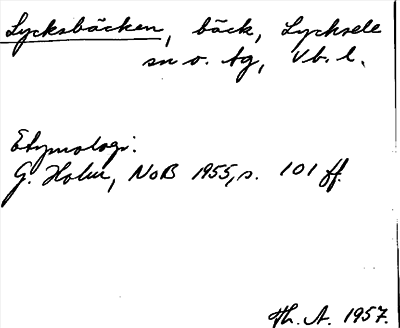 Lycksbäcken, bäck, Lycksele
sn o. tg, Vb. l.
Etymologi:
G. Holm, NoB 1955, s. 101 ff.
Th. A. 1957.